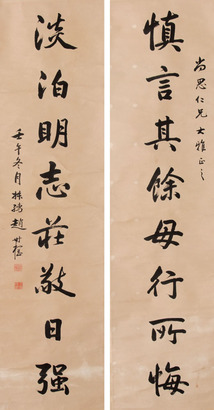 尚思仁兄大雅正之
慎言其餘毋行所悔
淡泊明志莊敬日强
壬午冬月
趙世